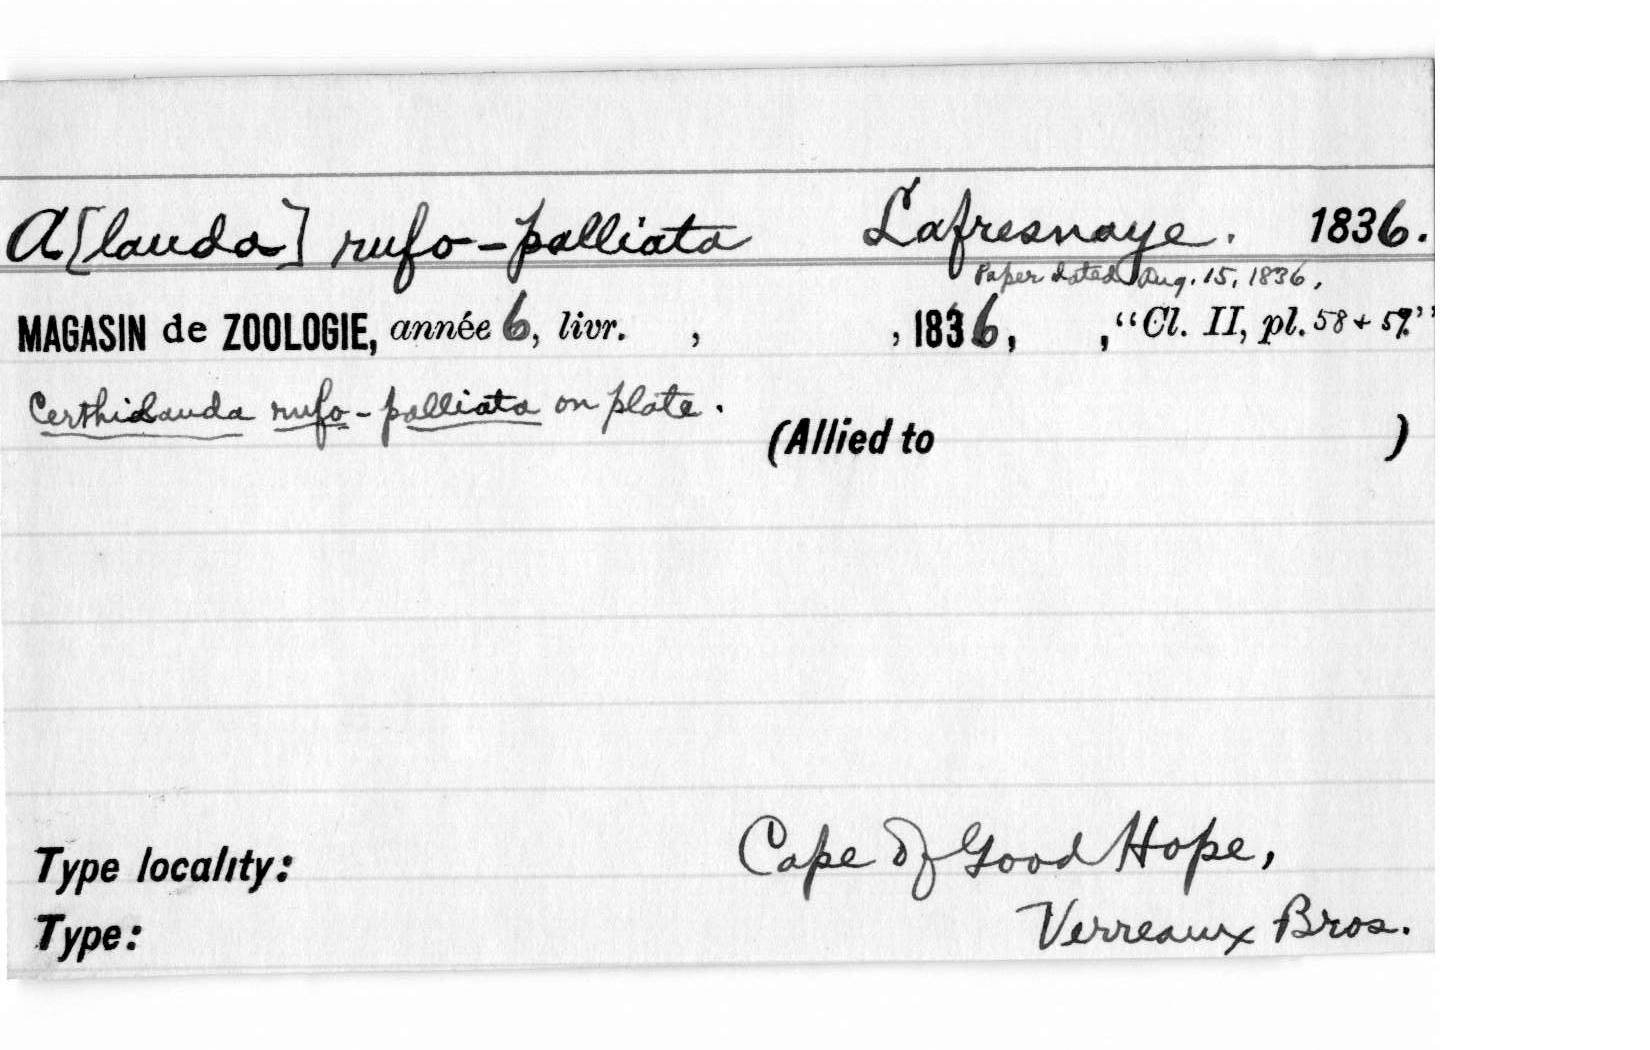 A[lauda] rufo-palliata Lafresnaye. 1836.
Paper dated Aug. 15, 1836,
MAGASIN de ZOOLOGIE, année 6, livr. , , 1836, , "Cl. II, pl. 58 + 59."
Certhilauda rufo-palliata on plate.
(Allied to )
Type locality: Cape of Good Hope,
Type: Verreaux Bros.